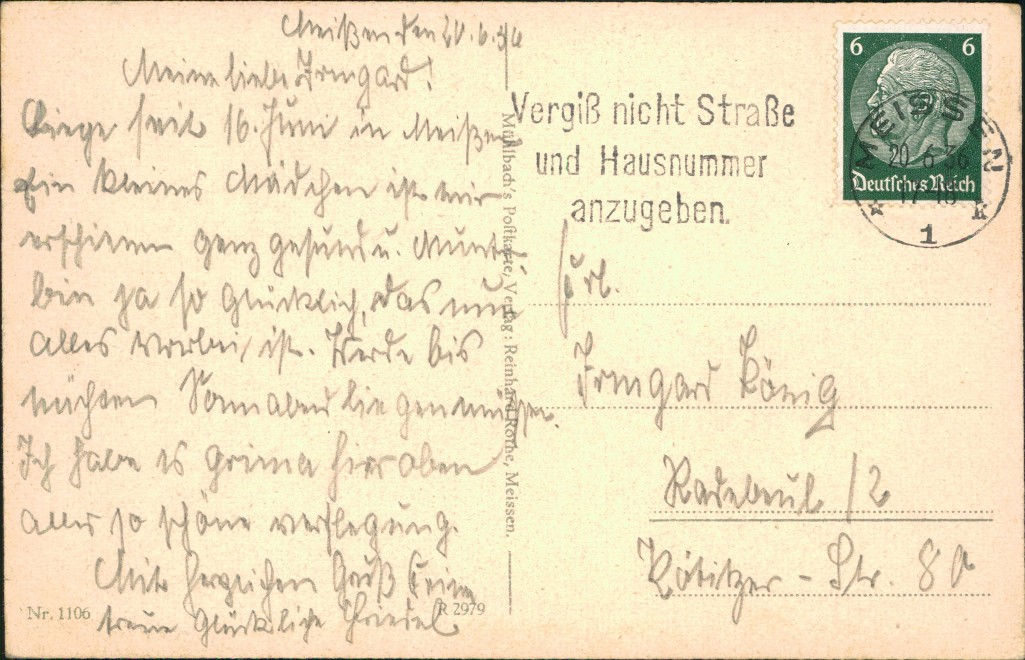 Meißen den 20.6.36
Meine liebe Irmgard!
Liege seit 16. Juni in Meißen
Ein kleines Mädchen ist mir
erschienen ganz gesund u. Munter
bin ja so Glücklich, das nun
alles vorbei ist. Werde bis
nächsten Sonnabend liegen müssen.
Ich habe es prima hier oben
alles so schöne verflegung.
Mit herzlichen Gruß Deine
treue Glückliche Friedel
Nr. 1106
R 2979
Mühlbach's Postkarte, Verlag: Reinhard Rothe, Meissen.
Vergiß nicht Straße
und Hausnummer
anzugeben.
6 6
Deutsches Reich
MEISSEN
20.6.36
1 k
Frl.
Irmgard König
Radebeul / 2
Kötitzer - Str. 80